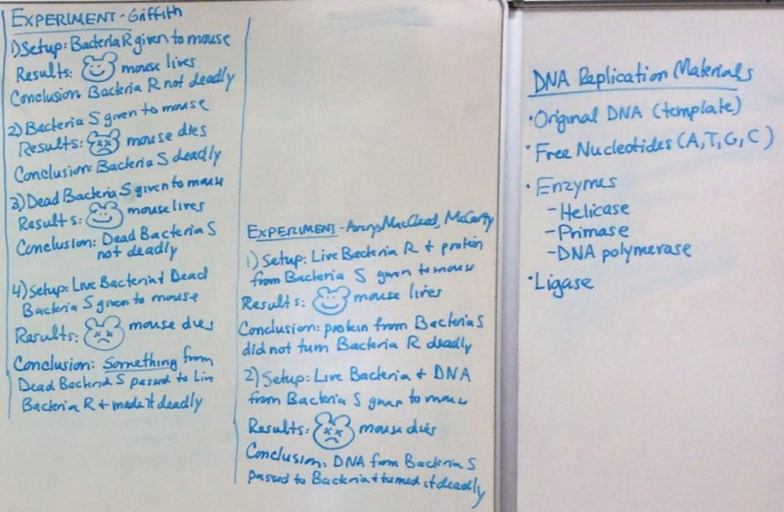 EXPERIMENT - Griffith
1) Setup: Bacteria R given to mouse
Results: mouse lives
Conclusion Bacteria R not deadly
2) Bacteria S given to mouse
Results: mouse dies
Conclusion: Bacteria S deadly
3) Dead Bacteria S given to mouse
Results: mouse lives
Conclusion: Dead Bacteria S
not deadly
4) Setup: Live Bacteria + Dead
Bacteria S given to mouse
Results: mouse dies
Conclusion: Something from
Dead Bacteria S passed to Live
Bacteria R + made it deadly
EXPERIMENT - Avery, MacClead, McCarty
1) Setup: Live Bacteria R + protein
from Bacteria S given to mouse
Results: mouse lives
Conclusion: protein from Bacteria S
did not turn Bacteria R deadly
2) Setup: Live Bacteria + DNA
from Bacteria S given to mouse
Results: mouse dies
Conclusion: DNA from Bacteria S
passed to Bacteria + turned it deadly
DNA Replication Materials
• Original DNA (template)
• Free Nucleotides (A, T, G, C)
• Enzymes
- Helicase
- Primase
- DNA polymerase
• Ligase